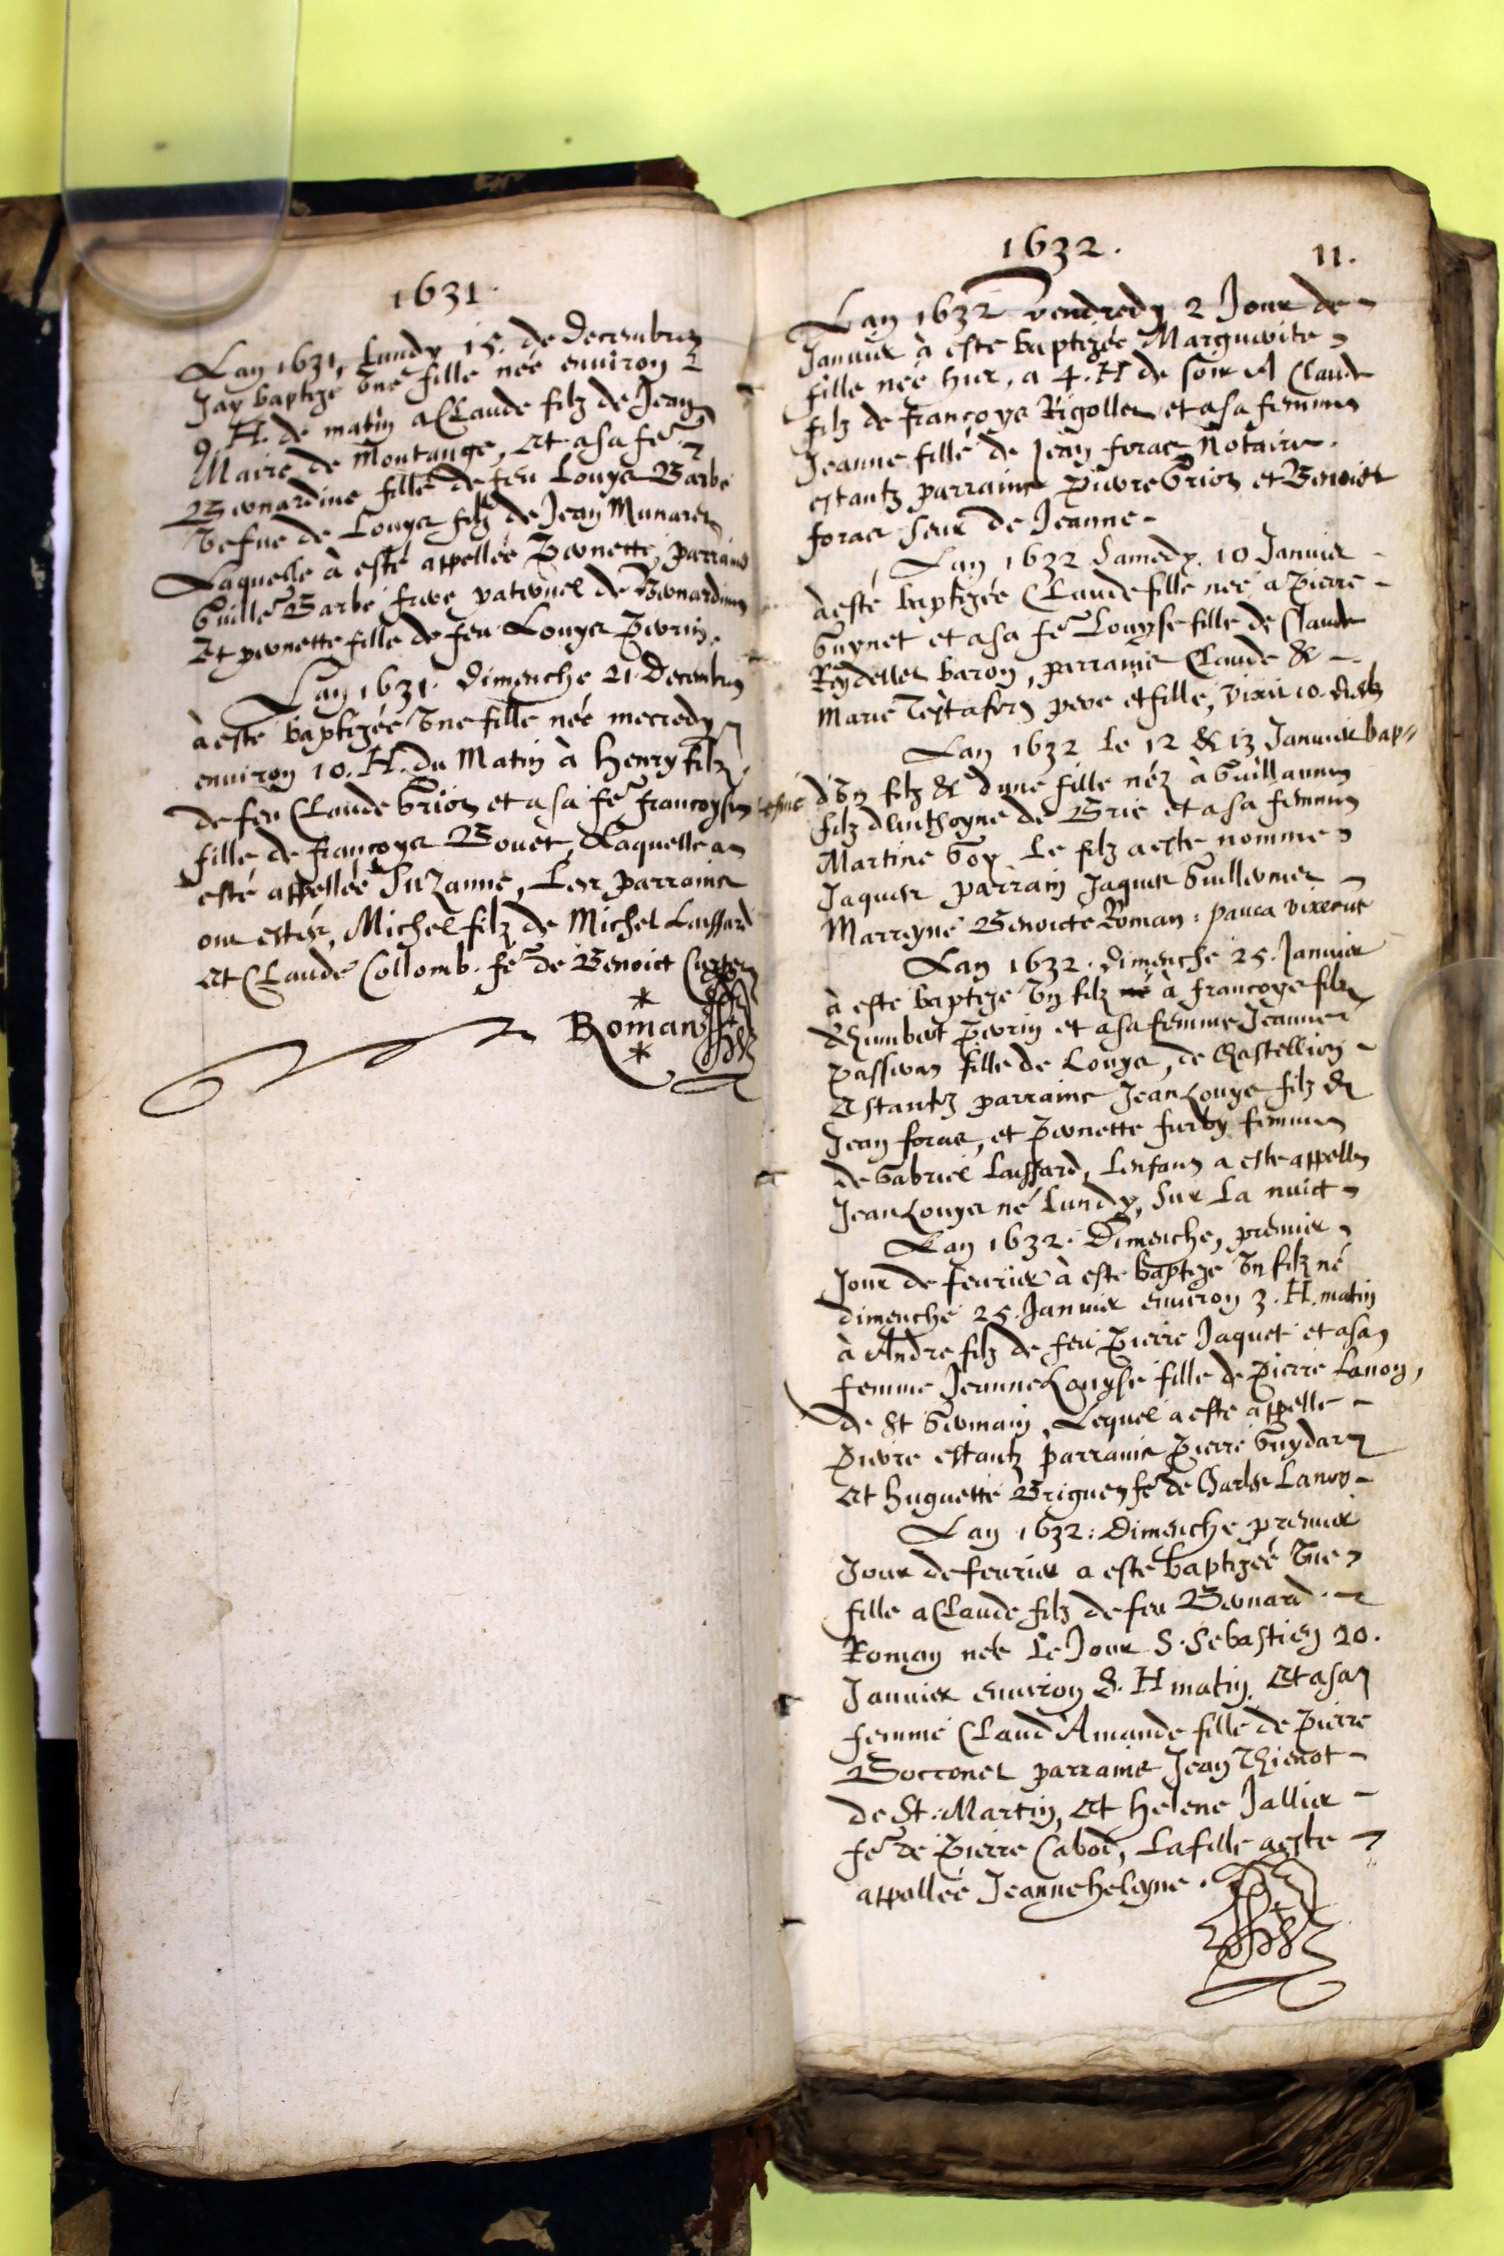 1631.
Lan 1631, Lundy 15. de Decembre
Jay baptizé une fille née environ
9. H. de matin a Claude filz de Jean
Maire de Montange, et a sa fe
Bernardine fille de feu Louys Barbe
Vefue de Louys filz de Jean Munarez
Laquelle à esté appellée Pernette, parrains
Guille Barbe frere paternel de Bernardine
Et pernette fille de feu Louys Perrin.
Lan 1631. Dimenche 21. Decembre
à esté baptizée Une fille née mecredy
environ 10. H. du Matin à Henry filz
de feu Claude Griot et a sa fe francoyse
fille de francoys Bouèt, Laquelle a
esté appellée Suzanne, Les parrains
ont estés, Michel filz de Michel Laissard
et Claude Collomb. fe de Benoict
Roman
1632. 11.
Lan 1632 vendredy 2 Jour de
Januier à este baptizée Marguerite
fille née hier, a 4. H de soir A Claude
filz de francoys Rigollet et a sa femme
Jeanne fille de Jean foras Notaire.
estantz parrains pierre Griot et Benoiste
foras seur de Jeanne
Lan 1632 Samedy. 10 Januier
à esté baptizée Claude fille nee a Pierre
Guynet et a sa fe Louyse fille de Claude
Reydellet baron, parrains Claude &
Marie Testafort pere et fille, vixit 10. dieb
Lan 1632 Le 12 & 13 Januier bap
d'Un filz & d'une fille néz à Guillaume
filz d'Anthoyne de Brie et a sa femme
Martine Goy Le filz a este nomme
Jaques parrain Jaques Guillermet
Marreyne Benoicte Roman: pauca vixerunt
Lan 1632. dimenche 25. Januier
à este baptize Un filz né à francoys filz
d'humbert Perrin et a sa femme Jeanne
passeran fille de Louys, de Chastellion
Estantz parrains Jean Louys filz de
Jean foras, et Pernette furdy femme
de Gabriel Laissard, Lenfant a este appelle
Jean Louys né Lundy, sur La nuict
Lan 1632. Dimenche, premier
Jour de feurier à este baptizé Un filz né
dimenche 25. Januier environ 3. H. matin
à Andre filz de feu Pierre Jaquet et a sa
femme Jeanne Louyse fille de Pierre Lanoy,
de St Germain, Lequel a este appelle
Pierre estantz parrains Pierre Guydar
Et huguette Briguen fe de Charles Lanoy
Lan 1632: Dimenche premier
Jour de feurier a esté baptizeé Une
fille a Claude filz de feu Bernard
Roman née Le Jour S. Sebastien 20.
Januier environ 8. H matin. Et a sa
femme Claud'Amande fille de Pierre
Borronet parrains Jean Thienot
de St. Martin, et Helene Jallier
fe de Pierre Cabod, La fille a este
appellée Jeanne heleyne.